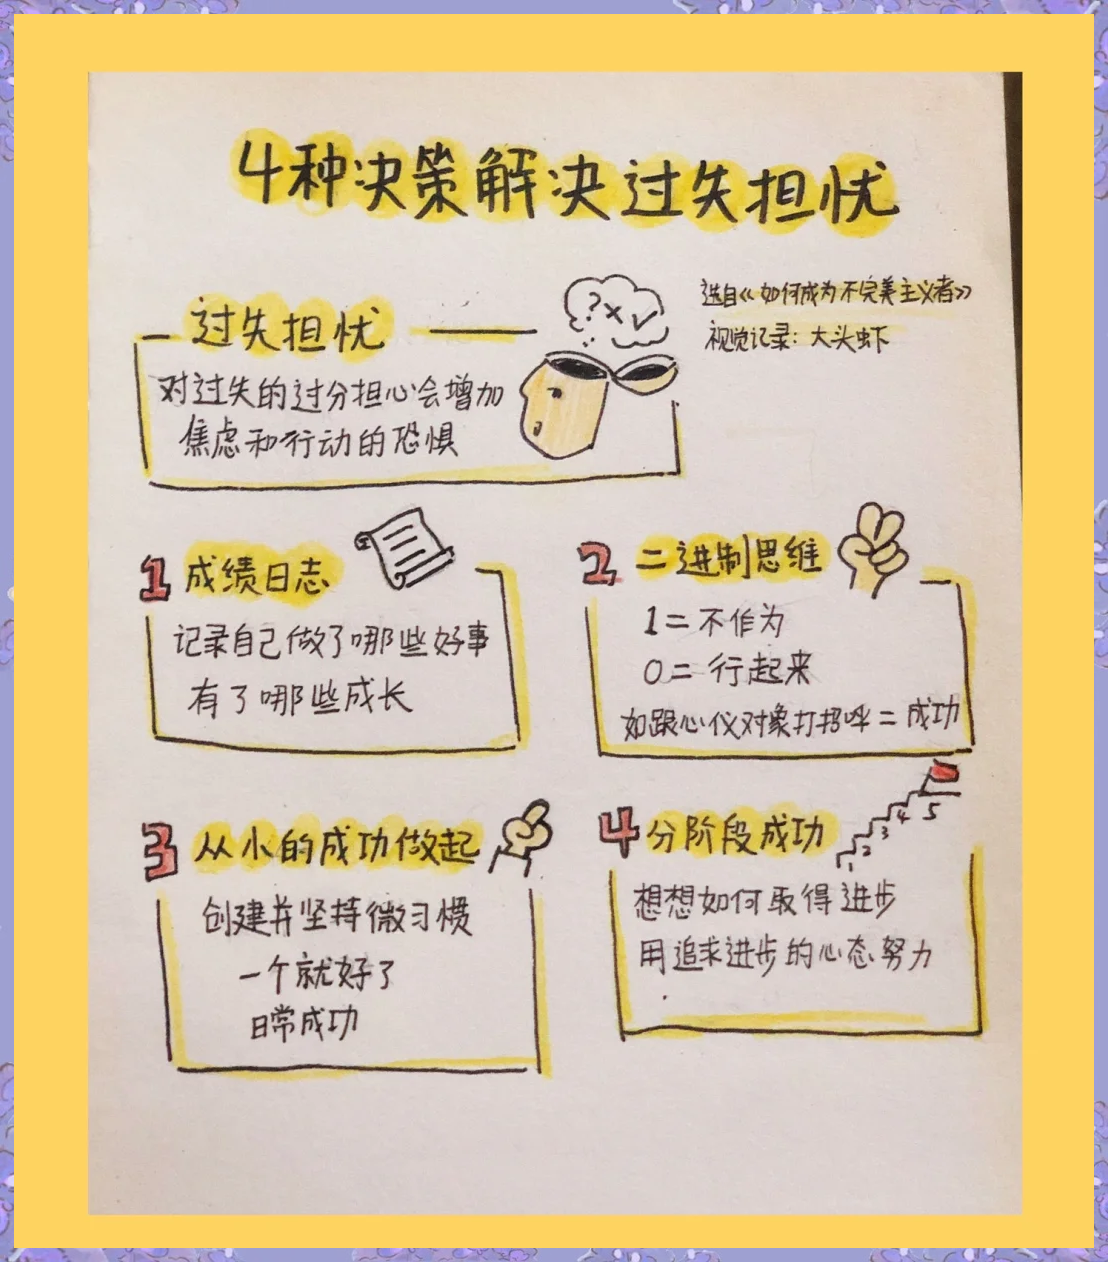 4种决策解决过失担忧
选自《如何成为不完美主义者》
视觉记录：大头虾
过失担忧
? × √
对过失的过分担心会增加
焦虑和行动的恐惧
1 成绩日志
记录自己做了哪些好事
有了哪些成长
2 二进制思维
1=不作为
0=行起来
如跟心仪对象打招呼=成功
3 从小的成功做起
创建并坚持微习惯
一个就好了
日常成功
4 分阶段成功
1 2 3 4 5
想想如何取得进步
用追求进步的心态努力